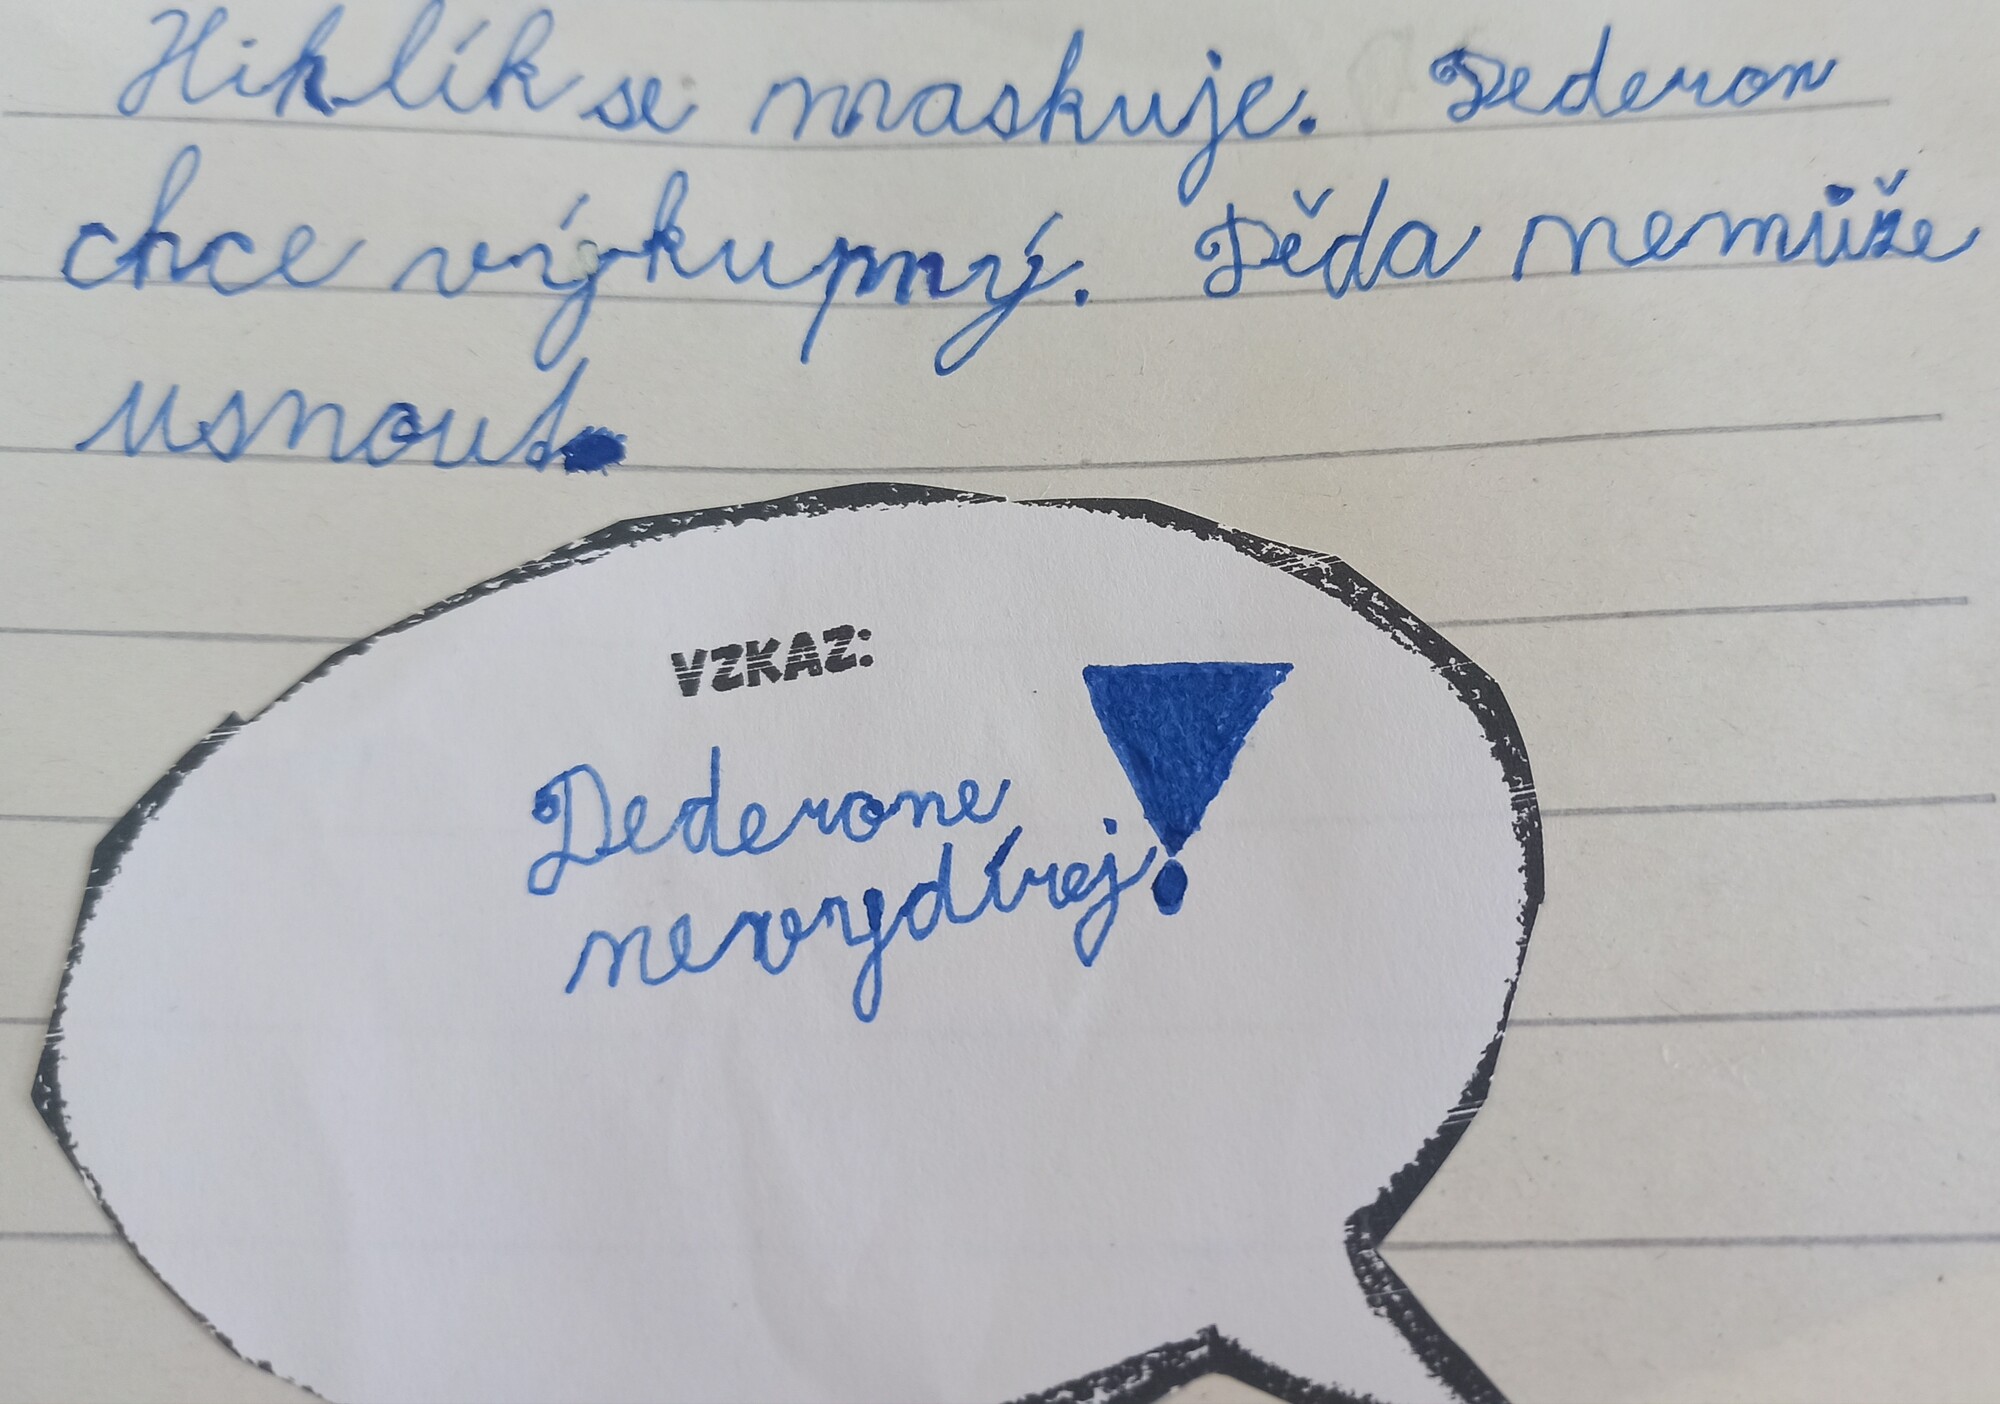 Hiklík se maskuje. Dederon
chce výkupný. Děda nemůže
usnout.
VZKAZ:
Dederone
nevydírej!